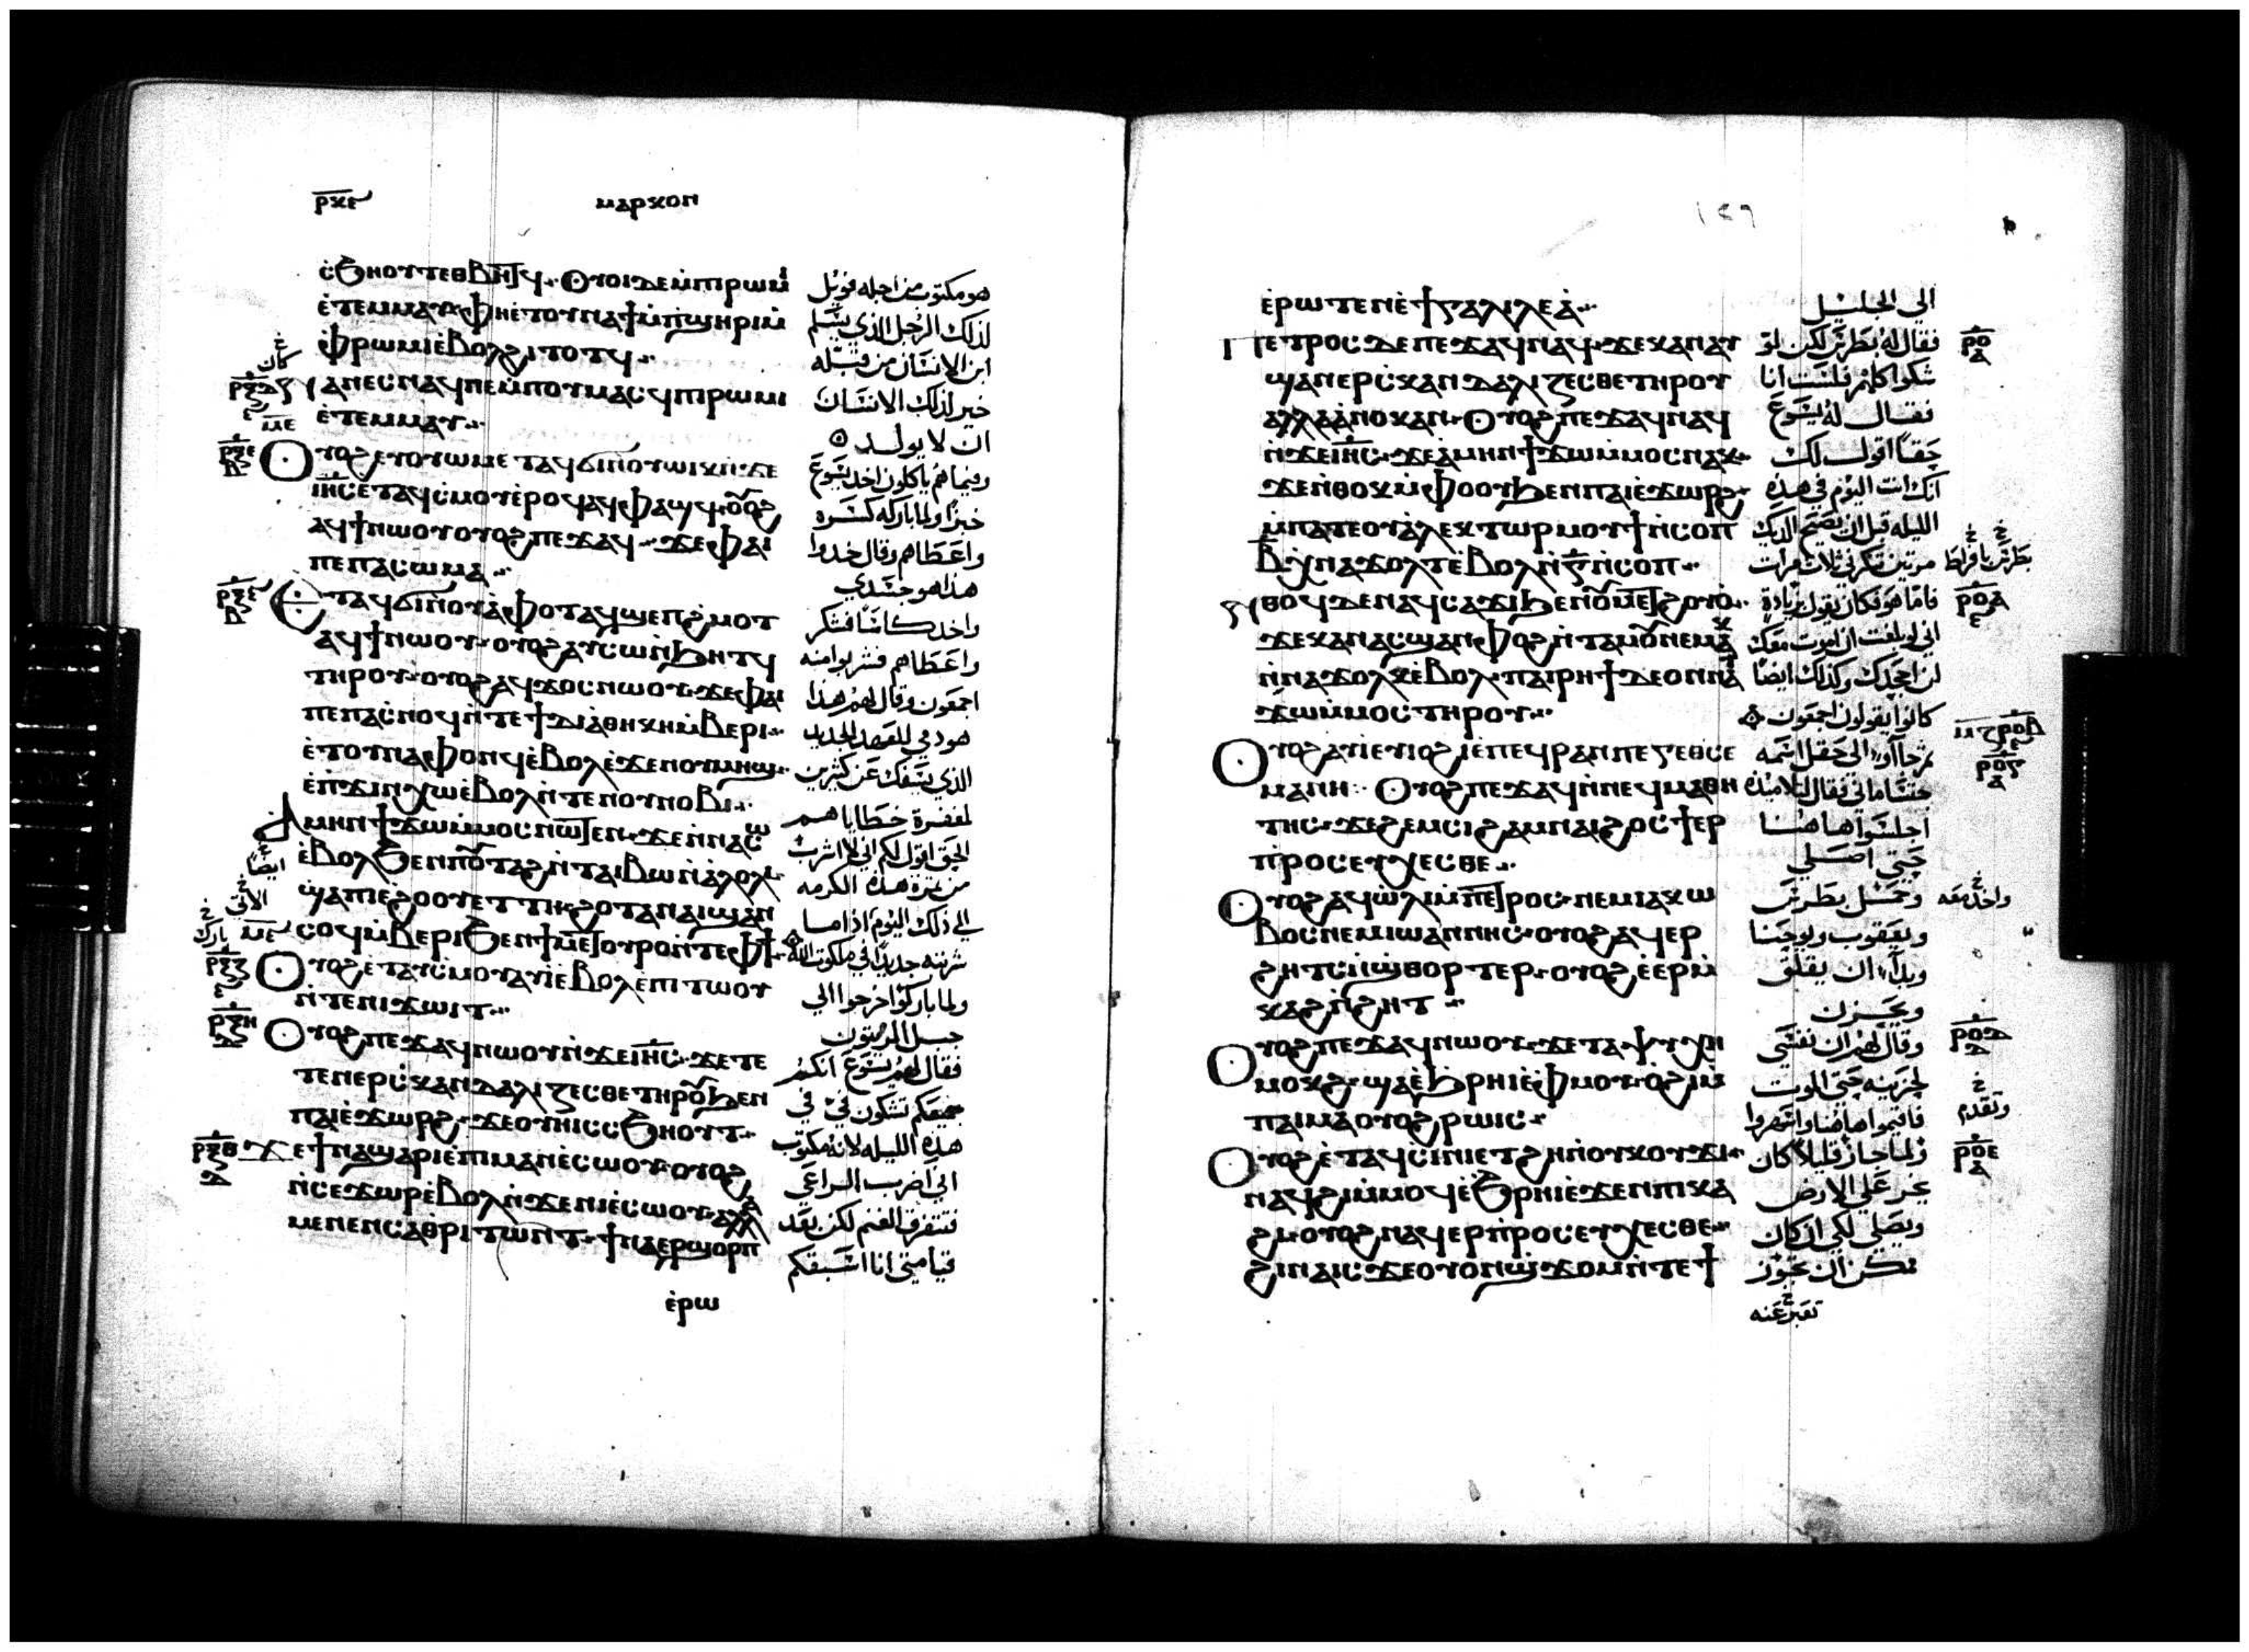 ⲣⲕⲋ ⲙⲁⲣⲕⲟⲛ
ⲥ̀ϧⲏⲟⲩⲧ ⲉⲑⲃⲏⲧϥ· Ⲟⲩⲟⲓ ⲇⲉ ⲙ̀ⲡⲓⲣⲱⲙⲓ
ⲉ̀ⲧⲉⲙⲙⲁⲩ ⲫⲏ ⲉ̀ⲧⲟⲩⲛⲁϯ ⲙ̀ⲡϣⲏⲣⲓ ⲙ̀
ⲫ̀ⲣⲱⲙⲓ ⲉ̀ⲃⲟⲗ ϩⲓⲧⲟⲧϥ··
ⲛⲁⲛⲉⲥ ⲛⲁϥ ⲡⲉ ⲙ̀ⲡⲟⲩⲙⲁⲥϥ ⲡⲓⲣⲱⲙⲓ
ⲉ̀ⲧⲉⲙⲙⲁⲩ··
Ⲟⲩⲟϩ ⲉⲩⲟⲩⲱⲙ ⲉⲧⲁϥϭⲓ ⲛ̀ⲟⲩⲱⲓⲕ ⲛ̀ϫⲉ
ⲓⲏⲥ ⲉⲧⲁϥⲥ̀ⲙⲟⲩ ⲉ̀ⲣⲟϥ ⲁϥⲫⲁϣϥ ⲟⲩⲟϩ
ⲁϥϯ ⲛⲱⲟⲩ ⲟⲩⲟϩ ⲡⲉϫⲁϥ·· ϫⲉ ⲫⲁⲓ
ⲡⲉ ⲡⲁⲥⲱⲙⲁ··
Ⲉⲧⲁϥϭⲓ ⲛ̀ⲟⲩⲁ̀ⲫⲟⲧ ⲁϥϣⲉⲡϩ̀ⲙⲟⲧ
ⲁϥϯ ⲛⲱⲟⲩ· ⲟⲩⲟϩ ⲁⲩⲥⲱ ⲛ̀ϧⲏⲧϥ
ⲧⲏⲣⲟⲩ· ⲟⲩⲟϩ ⲁϥϫⲟⲥ ⲛⲱⲟⲩ· ϫⲉ ⲫⲁⲓ
ⲡⲉ ⲡⲁⲥ̀ⲛⲟϥ ⲛ̀ⲧⲉ ϯⲇⲓⲁⲑⲏⲕⲏ ⲙ̀ⲃⲉⲣⲓ··
ⲉ̀ⲧⲟⲩⲛⲁⲫⲟⲛϥ ⲉ̀ⲃⲟⲗ ⲉ̀ϫⲉⲛ ⲟⲩⲙⲏϣ·
ⲉ̀ⲡϫⲓⲛⲭⲱ ⲉ̀ⲃⲟⲗ ⲛ̀ⲧⲉ ⲛⲟⲩⲛⲟⲃⲓ··
Ⲁⲙⲏⲛ ϯϫⲱ ⲙ̀ⲙⲟⲥ ⲛⲱⲧⲉⲛ· ϫⲉ ⲛ̀ⲛⲁⲥⲱ
ⲉ̀ⲃⲟⲗϧⲉⲛ ⲡⲟⲩⲧⲁϩ ⲛ̀ⲧⲁⲓⲃⲱ ⲛ̀ⲁ̀ⲗⲟⲗⲓ
ϣⲁ ⲡⲓⲉ̀ϩⲟⲟⲩ ⲉⲧⲧⲏ· ϩⲟⲧⲁⲛ ⲁⲓϣⲁⲛ
ⲥⲟϥ ⲙ̀ⲃⲉⲣⲓ ϧⲉⲛ ϯⲙⲉⲧⲟⲩⲣⲟ ⲛ̀ⲧⲉ ⲫϯ·
Ⲟⲩⲟϩ ⲉ̀ⲧⲁⲩⲥ̀ⲙⲟⲩ ⲁⲩⲓ̀ ⲉ̀ⲃⲟⲗ ⲉ̀ⲡⲓⲧⲱⲟⲩ
ⲛ̀ⲧⲉ ⲛⲓϫⲱⲓⲧ··
Ⲟⲩⲟϩ ⲡⲉϫⲁϥ ⲛⲱⲟⲩ ⲛ̀ϫⲉ ⲓⲏⲥ· ϫⲉ ⲧⲉ
ⲧⲉⲛⲉⲣⲥ̀ⲕⲁⲛⲇⲁⲗⲓⲍⲉⲥⲑⲉ ⲧⲏⲣⲟⲩ ϧⲉⲛ
ⲡⲁⲓⲉ̀ϫⲱⲣϩ· ϫⲉ ⲟⲩⲏⲓ ⲥⲥϧⲏⲟⲩⲧ··
ϫⲉ ϯⲛⲁϣⲁⲣⲓ ⲉ̀ⲡⲓⲙⲁⲛⲉ̀ⲥⲱⲟⲩ· ⲟⲩⲟϩ
ⲛ̀ⲥⲉϫⲱⲣ ⲉ̀ⲃⲟⲗ ⲛ̀ϫⲉ ⲛⲓⲉ̀ⲥⲱⲟⲩ· ⲁⲗⲗⲁ
ⲙⲉⲛⲉⲛⲥⲁ ⲑⲣⲓⲧⲱⲛⲧ· ϯⲛⲁⲉⲣϣⲟⲣⲡ
ⲉ̀ⲣⲱ
هو مكتوب من اجله فويل
لذلك الرجل الذي يسلم
ابن الانسان من قبله
خير لذلك الانسان
ان لا يولد
وفيما هم ياكلون اخد يسوع
خبزا ولما باركه كسره
واعطاهم وقال خدوا
هذا هو جسدي
واخد كاسا فشكر
واعطاهم فشربوا منه
اجمعون وقال لهم هذا
هو دمي للعهد الجديد
الذي يسفك عن كثيرين
لمغفرة خطاياهم
الحق اقول لكم اني لا اشرب
من ثمرة هذه الكرمه
الي ذلك اليوم اذا ما
شربته جديدا في ملكوت الله
ولما باركوا خرجوا الي
جبل الزيتون
فقال لهم يسوع انكم
جميعكم تشكون في في
هذه الليله لانه مكتوب
اني اضرب الراعي
فتتفرق الغنم لكن بعد
قيامتي انا اسبقكم
كان
ⲣⲝⲇ
ⲙⲉ
ⲣⲝⲉ
ⲣⲝⲋ
ايضا
الاتي
بارك
ⲣⲝⲍ
ⲣⲝⲏ
ⲣⲝⲑ
١٢٦
ⲉ̀ⲣⲱⲧⲉⲛ ⲉ̀ϯⲅⲁⲗⲓⲗⲉⲁ̀··
Ⲡⲉⲧⲣⲟⲥ ⲇⲉ ⲡⲉϫⲁϥ ⲛⲁϥ· ϫⲉ ⲕⲁⲛ ⲁⲩ
ϣⲁⲛⲉⲣⲥ̀ⲕⲁⲛⲇⲁⲗⲓⲍⲉⲥⲑⲉ ⲧⲏⲣⲟⲩ
ⲁⲗⲗⲁ ⲁ̀ⲛⲟⲕ ⲁⲛ· Ⲟⲩⲟϩ ⲡⲉϫⲁϥ ⲛⲁϥ
ⲛ̀ϫⲉ ⲓⲏⲥ· ϫⲉ ⲁ̀ⲙⲏⲛ ϯϫⲱ ⲙ̀ⲙⲟⲥ ⲛⲁⲕ·
ϫⲉ ⲛ̀ⲑⲟⲕ ⲙ̀ⲫⲟⲟⲩ ϧⲉⲛ ⲡⲁⲓⲉ̀ϫⲱⲣϩ·
ⲙ̀ⲡⲁⲧⲉ ⲟⲩⲁ̀ⲗⲉⲕⲧⲱⲣ ⲙⲟⲩϯ ⲛ̀ⲥⲟⲡ
ⲃ̄ ⲭⲛⲁϫⲟⲗⲧ ⲉ̀ⲃⲟⲗ ⲛ̀ⲅ̄ ⲛ̀ⲥⲟⲡ··
ⲛⲑⲟϥ ⲇⲉ ⲛⲁϥⲥⲁϫⲓ ϧⲉⲛ ⲟⲩⲙⲉⲧϩⲟⲩⲟ̀··
ϫⲉ ⲕⲁⲛ ⲁⲥϣⲁⲛⲫⲟϩ ⲛ̀ⲧⲁⲙⲟⲩ ⲛⲉⲙⲁⲕ
ⲛ̀ⲛⲁϫⲟⲗⲕ ⲉ̀ⲃⲟⲗ· ⲡⲁⲓⲣⲏϯ ⲇⲉ ⲟⲛ ⲛⲁⲩ
ϫⲱ ⲙ̀ⲙⲟⲥ ⲧⲏⲣⲟⲩ··
Ⲟⲩⲟϩ ⲁⲩⲓ̀ ⲉⲩⲓⲟϩⲓ ⲉ̀ⲡⲉϥⲣⲁⲛ ⲡⲉ ⲅⲉⲑⲥⲉ
ⲙⲁⲛⲏ·· Ⲟⲩⲟϩ ⲡⲉϫⲁϥ ⲛ̀ⲛⲉϥⲙⲁⲑⲏ
ⲧⲏⲥ· ϫⲉ ϩⲉⲙⲥⲓ ϩⲁⲙⲛⲁⲓ ϩⲟⲥ ϯⲉⲣ
ⲡ̀ⲣⲟⲥⲉⲩⲭⲉⲥⲑⲉ··
Ⲟⲩⲟϩ ⲁϥⲱ̀ⲗⲓ ⲙ̀ⲡⲉⲧⲣⲟⲥ· ⲛⲉⲙ ⲓⲁⲕⲱ
ⲃⲟⲥ ⲛⲉⲙ ⲓⲱⲁⲛⲛⲏⲥ· ⲟⲩⲟϩ ⲁϥⲉⲣ
ϩⲏⲧⲥ ⲛ̀ϣ̀ⲑⲟⲣⲧⲉⲣ· ⲟⲩⲟϩ ⲉ̀ⲉⲣⲙ̀
ⲕⲁϩ ⲛ̀ϩⲏⲧ··
Ⲟⲩⲟϩ ⲡⲉϫⲁϥ ⲛⲱⲟⲩ· ϫⲉ ⲧⲁⲯⲩⲭⲏ
ⲙⲟⲕϩ· ϣⲁ ⲉ̀ϧⲣⲏⲓ ⲉ̀ⲫⲙⲟⲩ· ⲟ̀ϩⲓ ⲙ̀
ⲡⲁⲓⲙⲁ ⲟⲩⲟϩ ⲣⲱⲓⲥ··
Ⲟⲩⲟϩ ⲉ̀ⲧⲁϥⲥⲓⲛⲓ ⲉⲧϩⲏ ⲛ̀ⲟⲩⲕⲟⲩϫⲓ··
ⲛⲁϥϩⲓ ⲙ̀ⲙⲟϥ ⲉ̀ϧⲣⲏⲓ ⲉ̀ϫⲉⲛ ⲡⲓⲕⲁ
ϩⲓ· ⲟⲩⲟϩ ⲛⲁϥⲉⲣⲡ̀ⲣⲟⲥⲉⲩⲭⲉⲥⲑⲉ··
ϩⲓⲛⲁ ⲓⲥϫⲉ ⲟⲩⲟⲛ ϣ̀ϫⲟⲙ ⲛ̀ⲧⲉϯ
الي الجليل
فقال له بطرس لكن لو
شكوا كلهم فلست انا
فقال له يسوع
حقا اقول لك
انك انت اليوم في هذه
الليله قبل ان يصيح الديك
مرتين تنكرني ثلاث مرات
فاما هو فكان يقول بزيادة
اني لو بلغت ان اموت معك
لن اجحدك وكذلك ايضا
كانوا يقولون اجمعون
ثم جاآوا الي حقل اسمه
جتسماني فقال لتلاميذه
اجلسوا هاهنا
حتي اصلي
وحمل بطرس
ويعقوب ويوحنا
وبدا ان يقلق
ويحزن
وقال لهم ان نفسي
لحزينه حتي الموت
فاقيموا هاهنا واسهروا
ولما جاز قليلا كان
يخر علي الارض
ويصلي لكي ان كان
تمكن ان تجوز
تعبر عنه
ⲣⲟ
ⲣⲟⲁ
ⲣⲟⲃ
ⲣⲟⲅ
واخذ معه
ⲣⲟⲇ
وتقدم
ⲣⲟⲉ